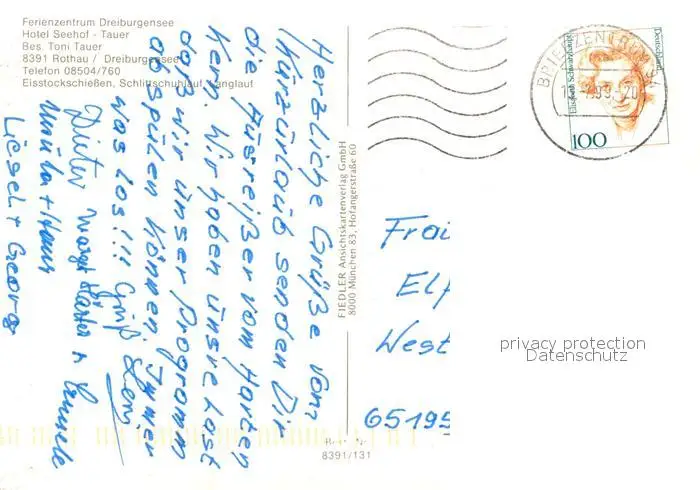 Ferienzentrum Dreiburgensee
Hotel Seehof - Tauer
Bes. Toni Tauer
8391 Rothau / Dreiburgensee
Telefon 08504/760
Eisstockschießen, Schlittschuhlauf, Langlauf
Herzliche Grüße vom
Kurzurlaub senden Dir
die Ausreißer vom Harten
Kern. Wir haben unsre Last
daß wir unser Programm
abspulen können. Immer
was los!!! Gruß
Dieter
Liesel + Georg
FIEDLER Ansichtskartenverlag GmbH
8000 München 83, Hofangerstraße 60
8391/131
BRIEFZENTRUM
Elisabeth Schwarzhaupt
Deutschland
100
Frau
Elf
West
65195
privacy protection
Datenschutz